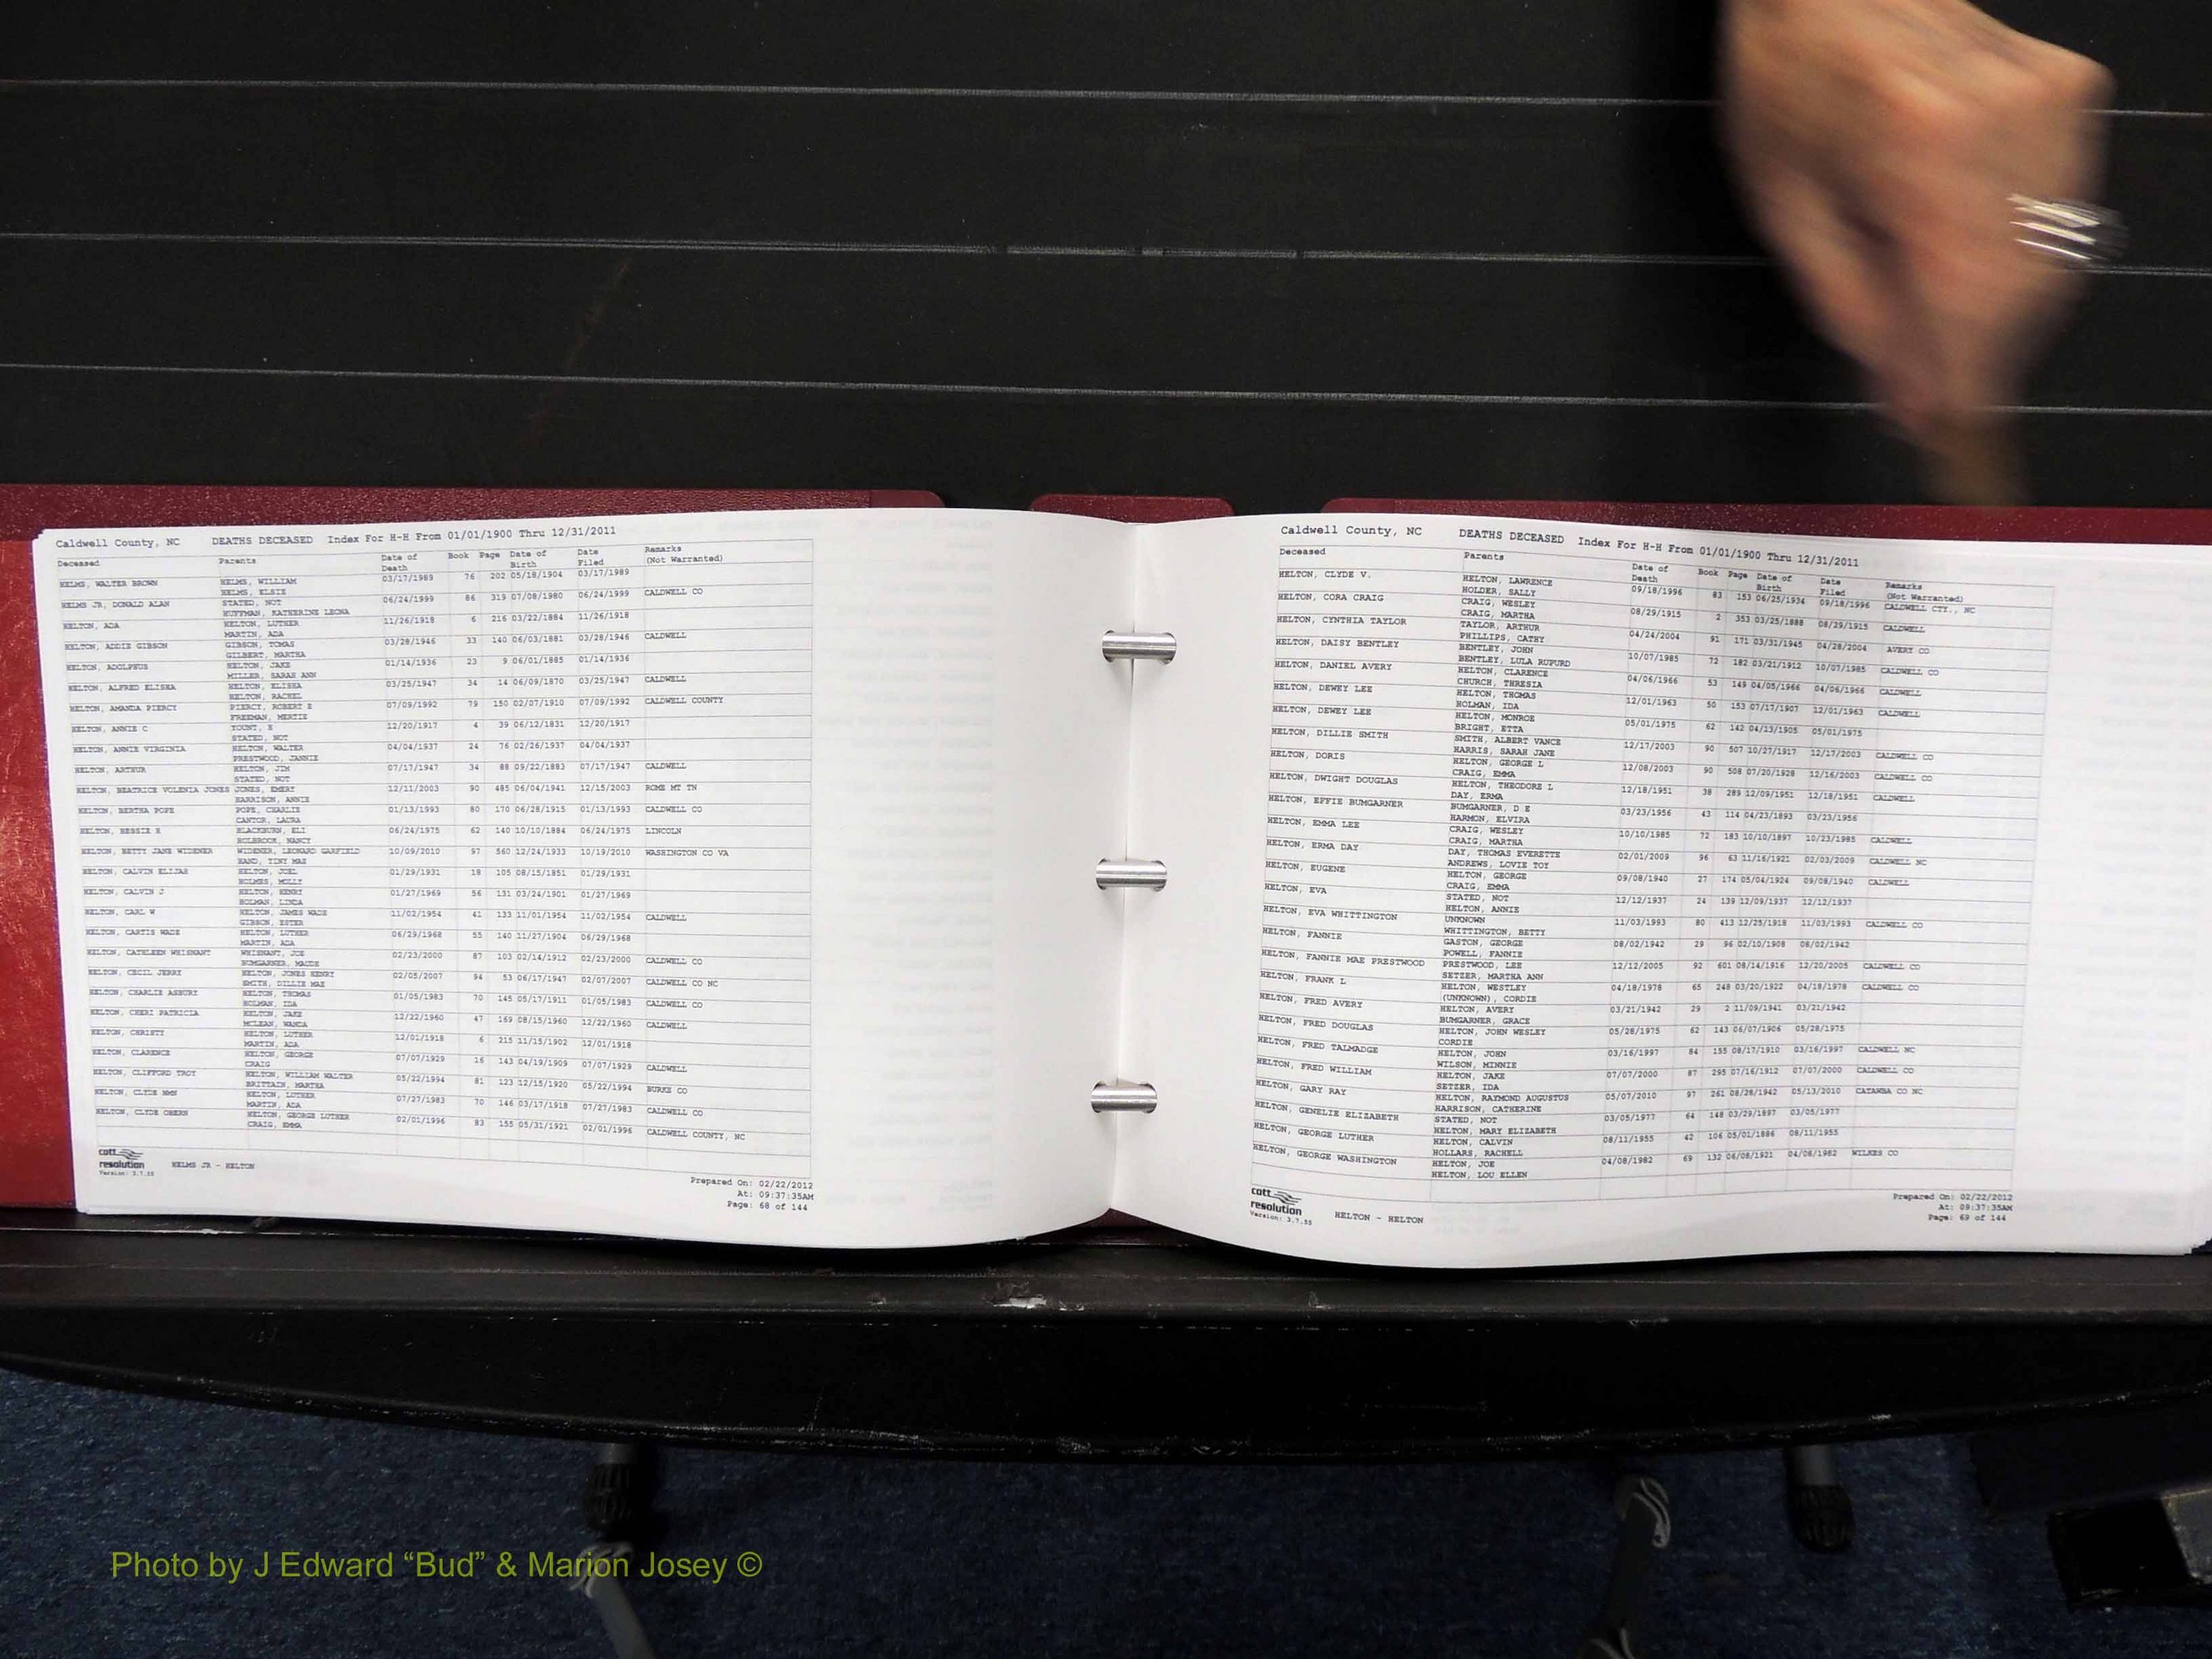 Caldwell County, NC DEATHS DECEASED Index For H-H From 01/01/1900 Thru 12/31/2011
Deceased Parents Date of Death Book Page Date of Birth Date Filed Remarks (Not Warranted)
HELMS, WALTER BROWN HELMS, WILLIAM 03/17/1989 76 202 05/18/1904 03/17/1989
HELMS, ELSIE
HELMS JR, DONALD ALAN STATED, NOT 06/24/1999 86 319 07/08/1980 06/24/1999 CALDWELL CO
HUFFMAN, KATHERINE LEONA
HELTON, ADA HELTON, LUTHER 11/26/1918 6 216 03/22/1884 11/26/1918
MARTIN, ADA
HELTON, ADDIE GIBSON GIBSON, TOMAS 03/28/1946 33 140 06/03/1881 03/28/1946 CALDWELL
GILBERT, MARTHA
HELTON, ADOLPHUS HELTON, JAKE 01/14/1936 23 9 06/01/1885 01/14/1936
MILLER, SARAH ANN
HELTON, ALFRED ELISHA HELTON, ELISHA 03/25/1947 34 14 06/09/1870 03/25/1947 CALDWELL
HELTON, RACHEL
HELTON, AMANDA PIERCY PIERCY, ROBERT E 07/09/1992 79 150 02/07/1910 07/09/1992 CALDWELL COUNTY
FREEMAN, MERTIE
HELTON, ANNIE C YOUNT, E 12/20/1917 4 39 06/12/1831 12/20/1917
STATED, NOT
HELTON, ANNIE VIRGINIA HELTON, WALTER 04/04/1937 24 76 02/26/1937 04/04/1937
PRESTWOOD, JANNIE
HELTON, ARTHUR HELTON, JIM 07/17/1947 34 88 09/22/1883 07/17/1947 CALDWELL
STATED, NOT
HELTON, BEATRICE VOLENIA JONES JONES, EMERY 12/11/2003 90 485 06/04/1941 12/15/2003 ROME MT TN
HARRISON, ANNIE
HELTON, BERTHA POPE POPE, CHARLIE 01/13/1993 80 170 06/28/1915 01/13/1993 CALDWELL CO
CANTOR, LAURA
HELTON, BESSIE H BLACKBURN, ELI 06/24/1975 62 140 10/10/1884 06/24/1975 LINCOLN
HOLBROOK, NANCY
HELTON, BETTY JANE WIDENER WIDENER, LEONARD GARFIELD 10/09/2010 97 560 12/24/1933 10/19/2010 WASHINGTON CO VA
HAND, TINY MAE
HELTON, CALVIN ELIJAH HELTON, JOEL 01/29/1931 18 105 08/15/1851 01/29/1931
HOLMES, MOLLY
HELTON, CALVIN J HELTON, HENRY 01/27/1969 56 131 03/24/1901 01/27/1969
HOLMAN, LINDA
HELTON, CARL W HELTON, JAMES WADE 11/02/1954 41 133 11/01/1954 11/02/1954 CALDWELL
GIBSON, ESTER
HELTON, CARTIS WADE HELTON, LUTHER 06/29/1968 55 140 11/27/1904 06/29/1968
MARTIN, ADA
HELTON, CATHLEEN WHISNANT WHISNANT, JOE 02/23/2000 87 103 02/14/1912 02/23/2000 CALDWELL CO
BUMGARNER, MAUDE
HELTON, CECIL JERRY HELTON, JONES HENRY 02/05/2007 94 53 06/17/1947 02/07/2007 CALDWELL CO NC
SMITH, DILLIE MAE
HELTON, CHARLIE ASBURY HELTON, THOMAS 01/05/1983 70 145 05/17/1911 01/05/1983 CALDWELL CO
HOLMAN, IDA
HELTON, CHERI PATRICIA HELTON, JAKE 12/22/1960 47 169 08/15/1960 12/22/1960 CALDWELL
MCLEAN, WANDA
HELTON, CHRISTY HELTON, LUTHER 12/01/1918 6 215 11/15/1902 12/01/1918
MARTIN, ADA
HELTON, CLARENCE HELTON, GEORGE 07/07/1929 16 143 04/19/1909 07/07/1929 CALDWELL
CRAIG
HELTON, CLIFFORD TROY HELTON, WILLIAM WALTER 05/22/1994 81 123 12/15/1920 05/22/1994 BURKE CO
BRITTAIN, MARTHA
HELTON, CLYDE NMN HELTON, LUTHER 07/27/1983 70 146 03/17/1918 07/27/1983 CALDWELL CO
MARTIN, ADA
HELTON, CLYDE OBERN HELTON, GEORGE LUTHER 02/01/1996 83 155 05/31/1921 02/01/1996 CALDWELL COUNTY, NC
CRAIG, EMMA
cott
resolution HELMS JR - HELTON
Version: 3.7.55
Prepared On: 02/22/2012
At: 09:37:35AM
Page: 68 of 144
Caldwell County, NC DEATHS DECEASED Index For H-H From 01/01/1900 Thru 12/31/2011
Deceased Parents Date of Death Book Page Date of Birth Date Filed Remarks (Not Warranted)
HELTON, CLYDE V. HELTON, LAWRENCE 09/18/1996 83 153 06/25/1934 09/18/1996 CALDWELL CTY., NC
HOLDER, SALLY
HELTON, CORA CRAIG CRAIG, WESLEY 08/29/1915 2 353 03/25/1888 08/29/1915 CALDWELL
CRAIG, MARTHA
HELTON, CYNTHIA TAYLOR TAYLOR, ARTHUR 04/24/2004 91 171 03/31/1945 04/28/2004 AVERY CO
PHILLIPS, CATHY
HELTON, DAISY BENTLEY BENTLEY, JOHN 10/07/1985 72 182 03/21/1912 10/07/1985 CALDWELL CO
BENTLEY, LULA RUPURD
HELTON, DANIEL AVERY HELTON, CLARENCE 04/06/1966 53 149 04/05/1966 04/06/1966 CALDWELL
CHURCH, THRESIA
HELTON, DEWEY LEE HELTON, THOMAS 12/01/1963 50 153 07/17/1907 12/01/1963 CALDWELL
HOLMAN, IDA
HELTON, DEWEY LEE HELTON, MONROE 05/01/1975 62 142 04/13/1905 05/01/1975
BRIGHT, ETTA
HELTON, DILLIE SMITH SMITH, ALBERT VANCE 12/17/2003 90 507 10/27/1917 12/17/2003 CALDWELL CO
HARRIS, SARAH JANE
HELTON, DORIS HELTON, GEORGE L 12/08/2003 90 508 07/20/1928 12/16/2003 CALDWELL CO
CRAIG, EMMA
HELTON, DWIGHT DOUGLAS HELTON, THEODORE L 12/18/1951 38 289 12/09/1951 12/18/1951 CALDWELL
DAY, ERMA
HELTON, EFFIE BUMGARNER BUMGARNER, D E 03/23/1956 43 114 04/23/1893 03/23/1956
HARMON, ELVIRA
HELTON, EMMA LEE CRAIG, WESLEY 10/10/1985 72 183 10/10/1897 10/23/1985 CALDWELL
CRAIG, MARTHA
HELTON, ERMA DAY DAY, THOMAS EVERETTE 02/01/2009 96 63 11/16/1921 02/03/2009 CALDWELL NC
ANDREWS, LOVIE TOY
HELTON, EUGENE HELTON, GEORGE 09/08/1940 27 174 05/04/1924 09/08/1940 CALDWELL
CRAIG, EMMA
HELTON, EVA STATED, NOT 12/12/1937 24 139 12/09/1937 12/12/1937
HELTON, ANNIE
HELTON, EVA WHITTINGTON UNKNOWN 11/03/1993 80 413 12/25/1918 11/03/1993 CALDWELL CO
WHITTINGTON, BETTY
HELTON, FANNIE GASTON, GEORGE 08/02/1942 29 96 02/10/1908 08/02/1942
POWELL, FANNIE
HELTON, FANNIE MAE PRESTWOOD PRESTWOOD, LEE 12/12/2005 92 601 08/14/1916 12/20/2005 CALDWELL CO
SETZER, MARTHA ANN
HELTON, FRANK L HELTON, WESTLEY 04/18/1978 65 248 03/20/1922 04/18/1978 CALDWELL CO
(UNKNOWN), CORDIE
HELTON, FRED AVERY HELTON, AVERY 03/21/1942 29 2 11/09/1941 03/21/1942
BUMGARNER, GRACE
HELTON, FRED DOUGLAS HELTON, JOHN WESLEY 05/28/1975 62 143 06/07/1906 05/28/1975
CORDIE
HELTON, FRED TALMADGE HELTON, JOHN 03/16/1997 84 155 08/17/1910 03/16/1997 CALDWELL NC
WILSON, MINNIE
HELTON, FRED WILLIAM HELTON, JAKE 07/07/2000 87 295 07/16/1912 07/07/2000 CALDWELL CO
SETZER, IDA
HELTON, GARY RAY HELTON, RAYMOND AUGUSTUS 05/07/2010 97 261 08/28/1942 05/13/2010 CATAWBA CO NC
HARRISON, CATHERINE
HELTON, GENELIE ELIZABETH STATED, NOT 03/05/1977 64 148 03/29/1897 03/05/1977
HELTON, MARY ELIZABETH
HELTON, GEORGE LUTHER HELTON, CALVIN 08/11/1955 42 106 05/01/1886 08/11/1955
HOLLARS, RACHELL
HELTON, GEORGE WASHINGTON HELTON, JOE 04/08/1982 69 132 06/08/1921 04/08/1982 WILKES CO
HELTON, LOU ELLEN
cott
resolution HELTON - HELTON
Version: 3.7.55
Prepared On: 02/22/2012
At: 09:37:35AM
Page: 69 of 144
Photo by J Edward “Bud” & Marion Josey ©